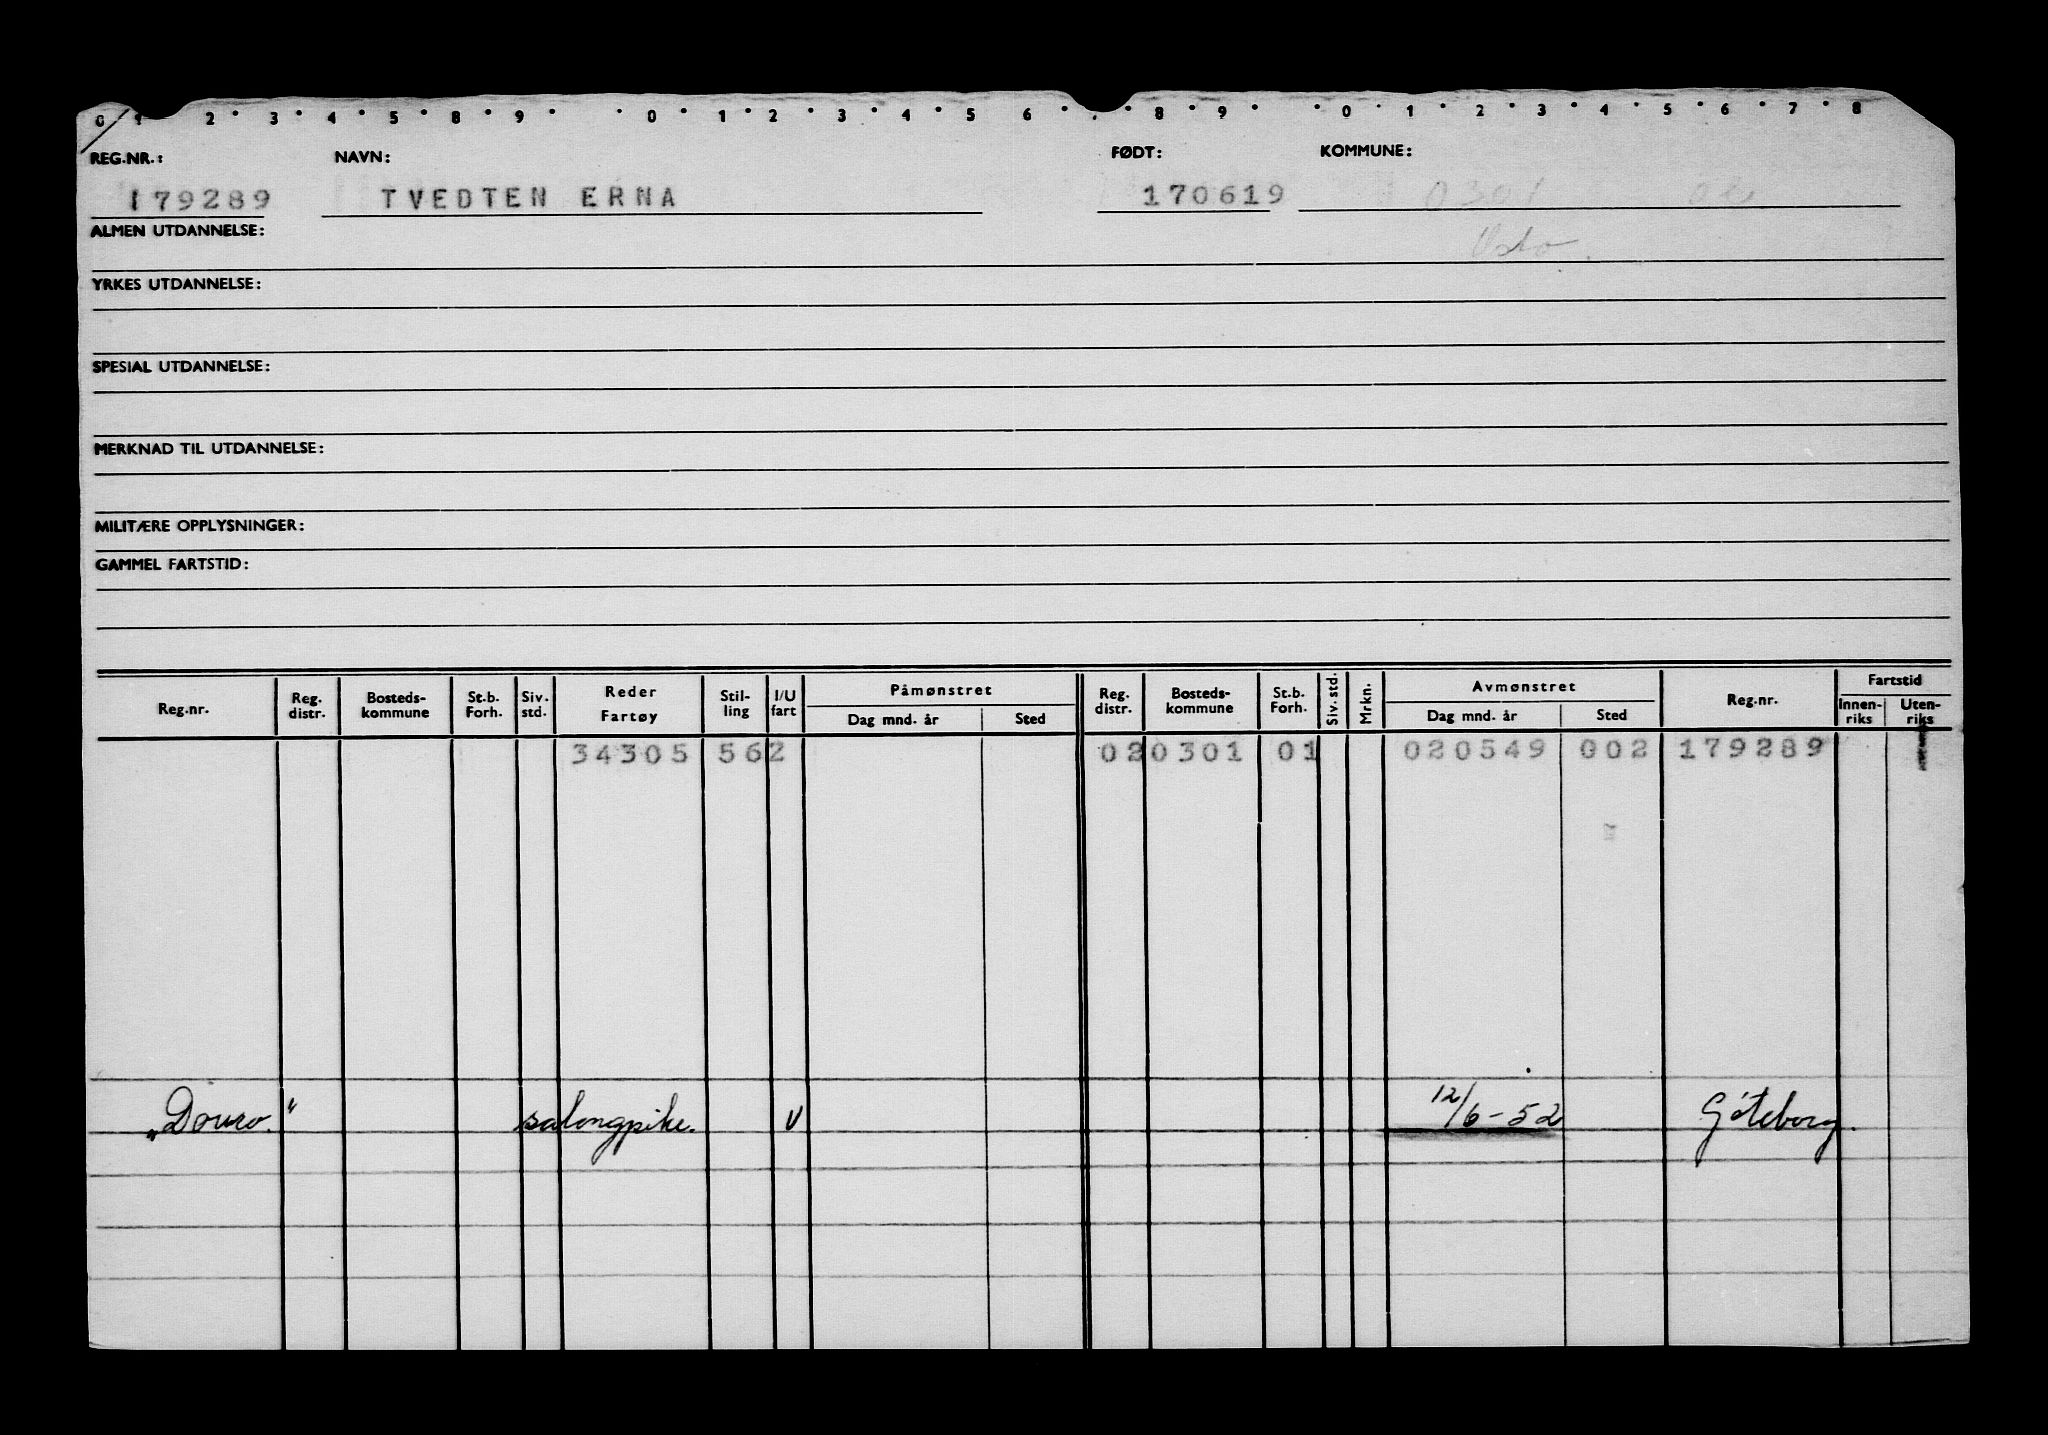 0 1 2 3 4 5 8 9 0 1 2 3 4 5 6 8 9 0 1 2 3 4 5 6 7 8
REG.NR.: NAVN: FØDT: KOMMUNE:
179289 TVEDTEN ERNA 170619 0301
ALMEN UTDANNELSE: Oslo
YRKES UTDANNELSE:
SPESIAL UTDANNELSE:
MERKNAD TIL UTDANNELSE:
MILITÆRE OPPLYSNINGER:
GAMMEL FARTSTID:
Reg.nr. Reg. distr. Bosteds- kommune St.b. Forh. Siv. std. Reder Fartøy Stil- ling I/U fart Påmønstret Dag mnd. år Sted Reg. distr. Bosteds- kommune St.b. Forh. Siv. std. Mrkn. Avmønstret Dag mnd. år Sted Reg.nr. Fartstid Innen- riks Uten- riks
34305 562 020301 01 020549 002 179289
„Douro." salongpike. U 12/6-52 Göteborg.